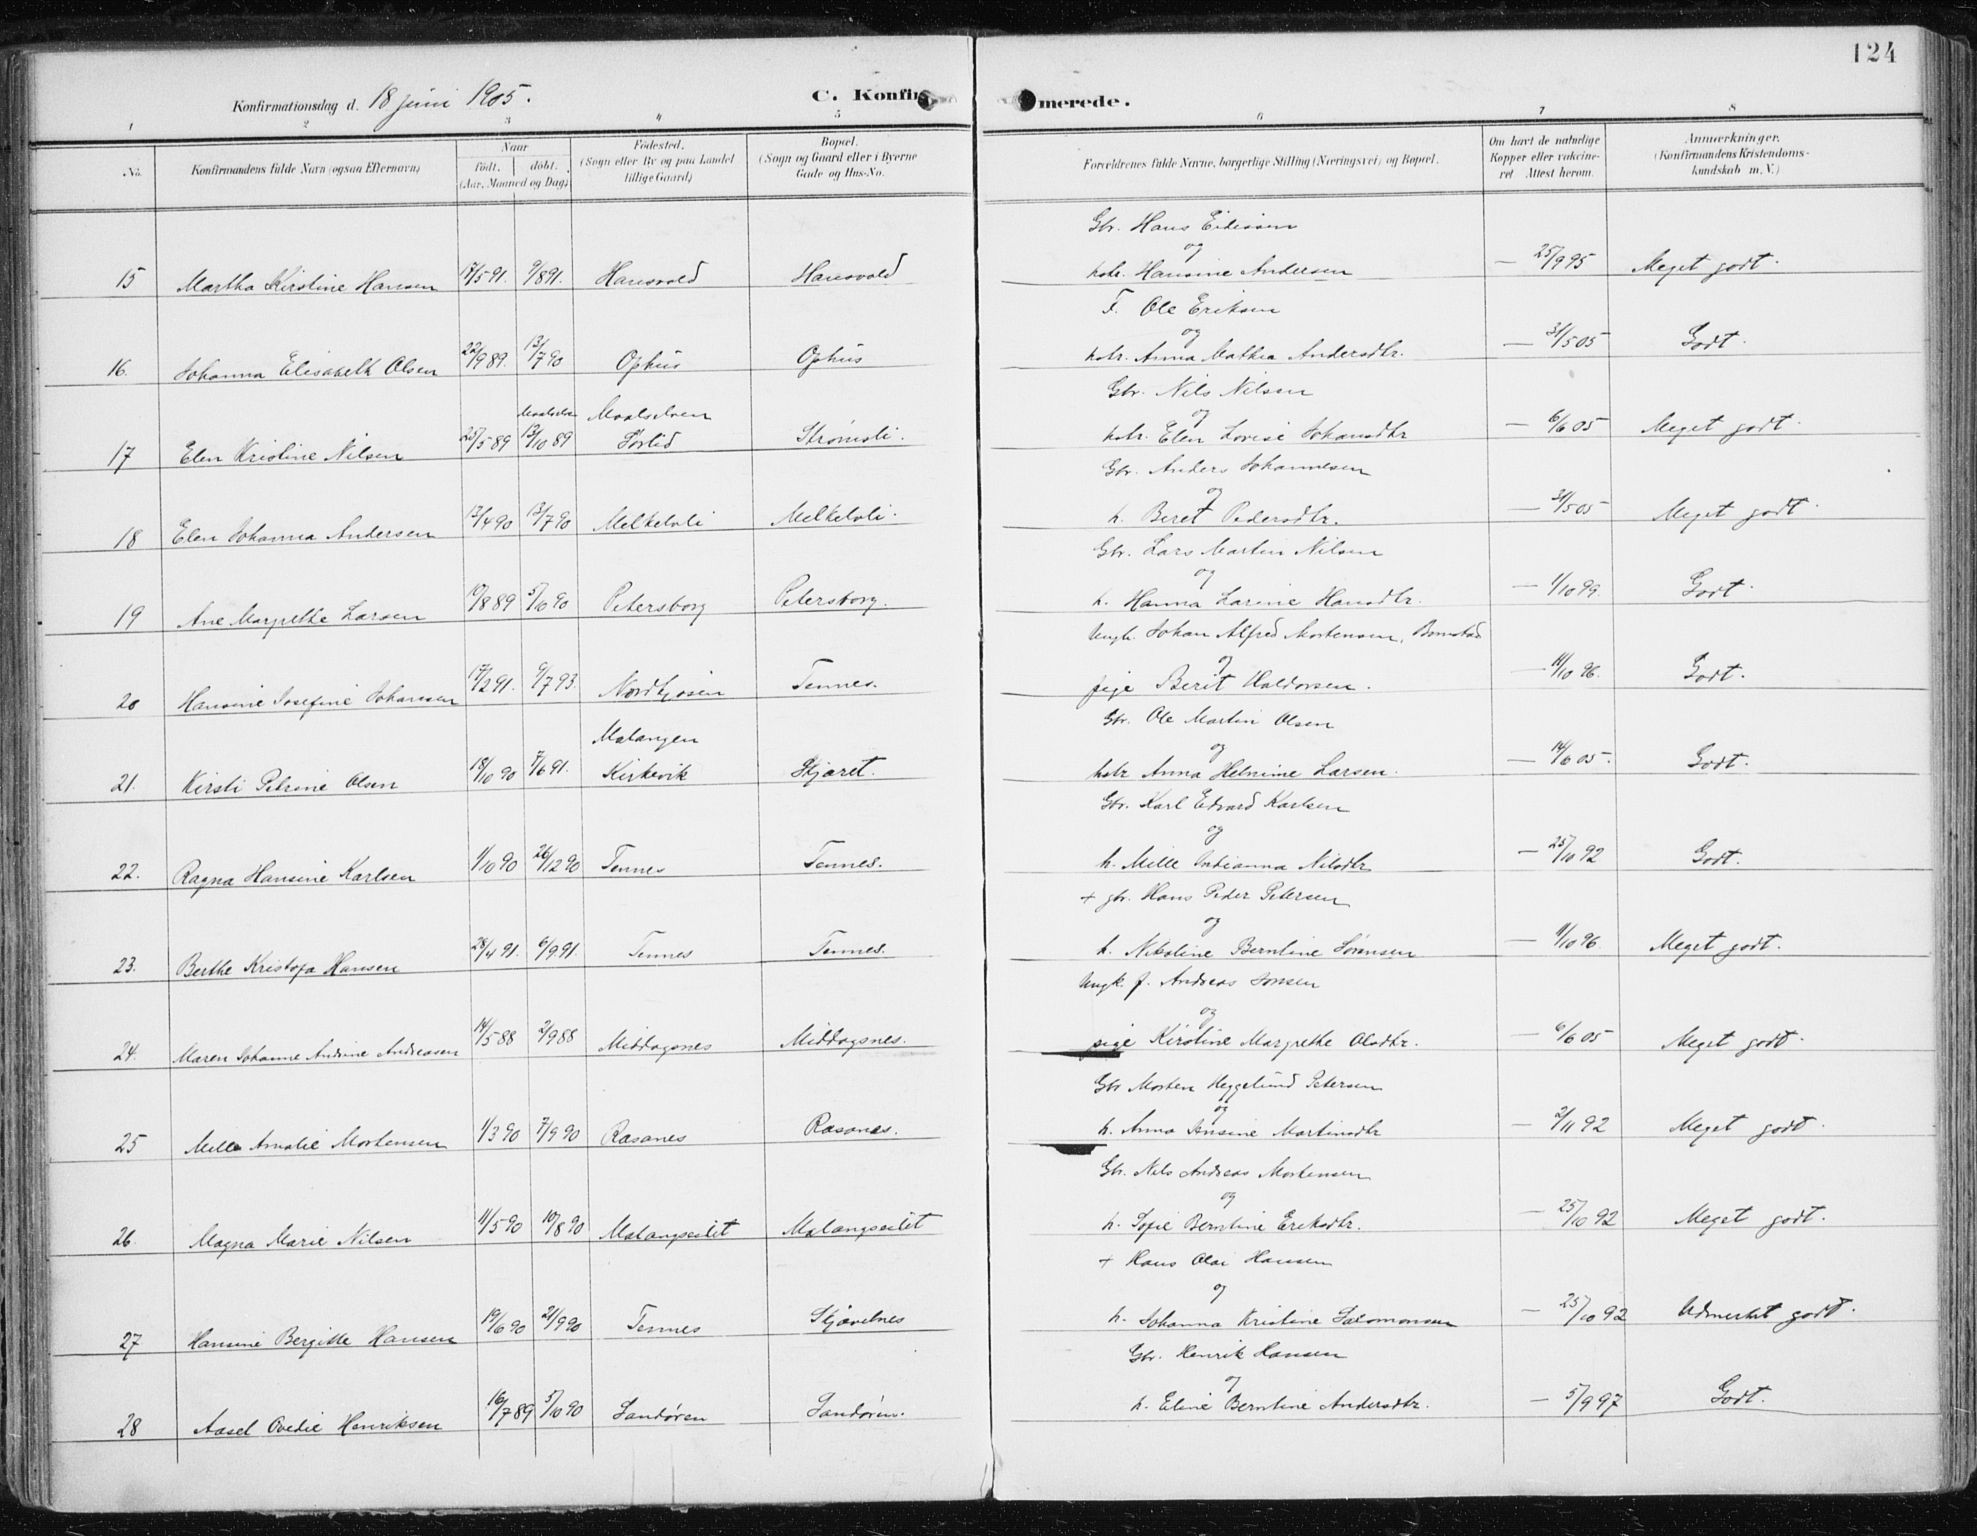 124
Konfirmationsdag d. 18 juni 1905.
C. Konfirmerede.
1 2 3 4 5 6 7 8
No. Konfirmandens fulde Navn (ogsaa Efternavn) Naar født. døbt. (Aar, Maaned og Dag) Fødested. (Sogn eller By og paa Landet tillige Gaard) Bopæl. (Sogn og Gaard eller i Byerne Gade og Hus-No. Forældrenes fulde Navne, borgerlige Stilling (Næringsvei) og Bopæl. Om havt de naturlige Kopper eller vakcineret Attest herom. Anmærkninger. (Konfirmandens Kristendomskundskab m. V.)
Gbr. Hans Edissen
og
15 Martha Kirstine Hansen 17/5 91. 9/8 91. Hansvold Hansvold hstr. Hansine Andersen — 25/9 95 Meget godt.
F. Ole Eriksen
og
16. Johanna Elisabeth Olsen 22/9 89. 13/7 90 Ophus Ophus hstr. Anna Mathea Andersdtr. — 31/5 05 Godt.
Gbr. Nils Nilsen
og
Maalselven Maalselven
17 Elen Kristine Nilsen 25/5 89 13/10 89 Førlid Strømsli. hstr. Elen Lovise Johansdtr — 6/6 05 Meget godt.
Gbr. Anders Johannesen
og
18 Elen Johanna Andersen 13/4 90 13/7 90 Melkeli Melkeli. h. Beret Pedersdtr. — 31/5 05 Meget godt.
Gbr. Lars Martin Nilsen
og
19 Ane Margrethe Larsen 19/8 89 5/10 90 Petersborg Petersborg. h. Hanna Larine Hansdtr. — 1/10 99. Godt.
Ungk. Johan Alfred Mortensen, Bomstad
og
20 Hansine Josefine Johansen 17/2 91. 9/7 93. Nordkjosen Tennes. pige Berit Haldorsen. — 11/10 96. Godt.
Gbr. Ole Martin Olsen
og
Malangen
21. Kirsti Petrine Olsen 18/10 90 7/6 91. Kirkevik Skjæret. hstr Anna Helmine Larsen. — 14/6 05. Godt.
Gbr. Karl Edvard Karlsen
og
22. Ragna Hansine Karlsen 1/10 90 26/12 90 Tennes Tennes. h. Mille Indianna Nilsdtr — 25/10 92 Godt.
+ gbr. Hans Peder Petersen
og
23. Berthe Kristofa Hansen 28/4 91. 6/9 91. Tennes Tennes. h. Nikoline Berntine Sørensen — 11/10 96. Meget godt.
Ungk. f. Andreas Jonsen
og
24. Maren Johanne Andrine Andreasen 14/5 88 2/9 88 Middagsnes Middagsnes. pige Kirstine Margrethe Olsdtr. — 6/6 05 Meget godt.
Gbr Morten Heggelund Petersen
og
25 Mille Amalie Mortensen 1/3 90 7/9 90 Rasanes Rasanes. h. Anna Ansine Martinsdtr — 2/11 92 Meget godt.
Gbr. Nils Andreas Mortensen
og
26. Magna Marie Nilsen 11/5 90 10/8 90 Malangseidet Malangseidet h. Sofie Berntine Eriksdtr. — 25/10 92 Meget godt.
+ Hans Olai Hansen
og
27 Hansine Bergitte Hansen 19/6 90 21/9 90 Tennes Skjævelnes h. Johanna Kristine Salomonsen — 25/10 92 Udmerket godt.
Gbr. Henrik Hansen
og
28 Aasel Ovedie Henriksen 16/7 89 5/10 90 Sandøren Sandøren. h. Eline Berntine Andersdtr. — 5/9 97 Godt.